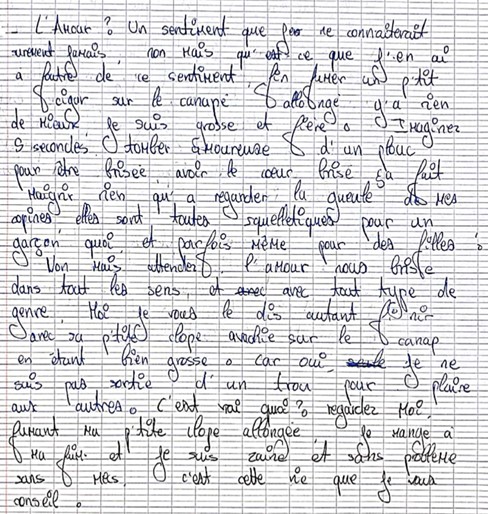 _ L'Amour ? Un sentiment que je ne connaîterait
surement jamais, non mais qu'est ce que j'en ai
à foutre de ce sentiment, j'en fumer un p'tit
cigar sur le canapé allongé y'a rien
de mieux, je suis grosse et fière. Imaginez
5 secondes, tomber amoureuse d'un plouc
pour être brisée, avoir le cœur brisé ça fait
maigrir rien qu'a regarder la gueule de mes
copines elles sont toutes squelletiques pour un
garçon quoi, et parfois même pour des filles :
Non mais attender, l'amour nous brise
dans tout les sens, et avec tout type de
genre. Moi je vous le dis autant finir
avec sa p'tite clope avachie sur le canap
en étant bien grosse. car oui, je ne
suis pas sortie d'un trou pour plaire
aux autres. C'est vrai quoi ? regardez moi,
fumant ma p'tite clope allongée, je mange à
ma faim et je suis zaine et sans problème
sans mec. c'est cette vie que je vous
conseil.